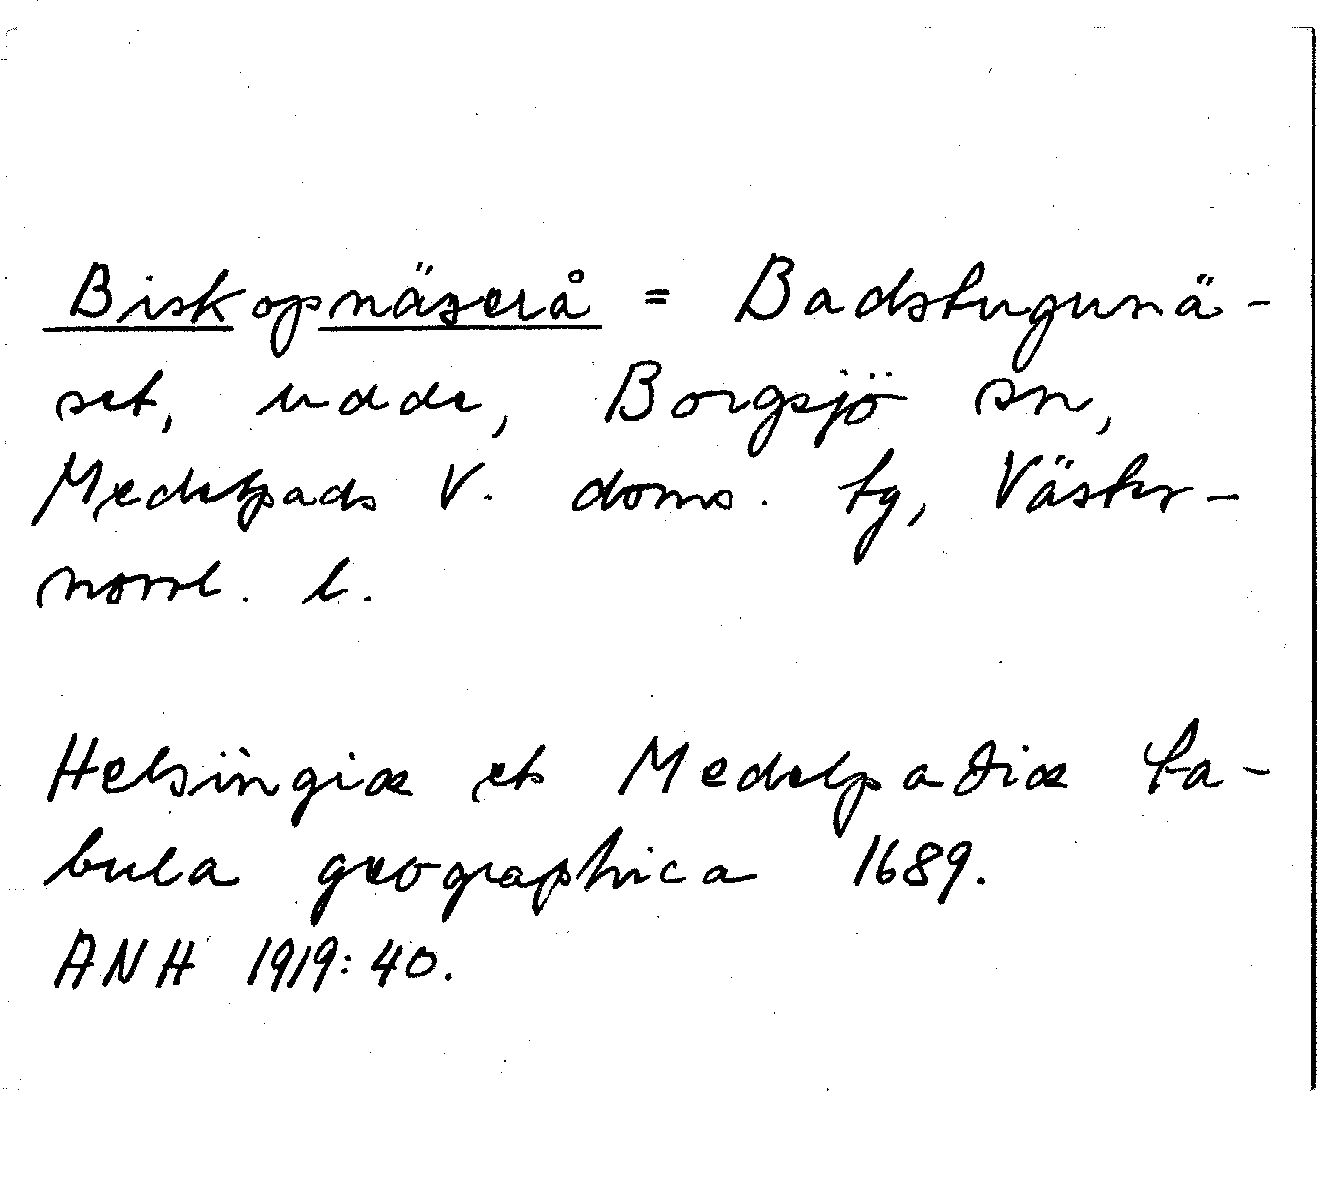 Biskopnäserå = Badstugunä-
set, udde, Borgsjö sn,
Medelpads V. doms. tg, Väster-
norrl. l.
Helsingiæ et Medelpadiæ ta-
bula geographica 1689.
ANH 1919:40.